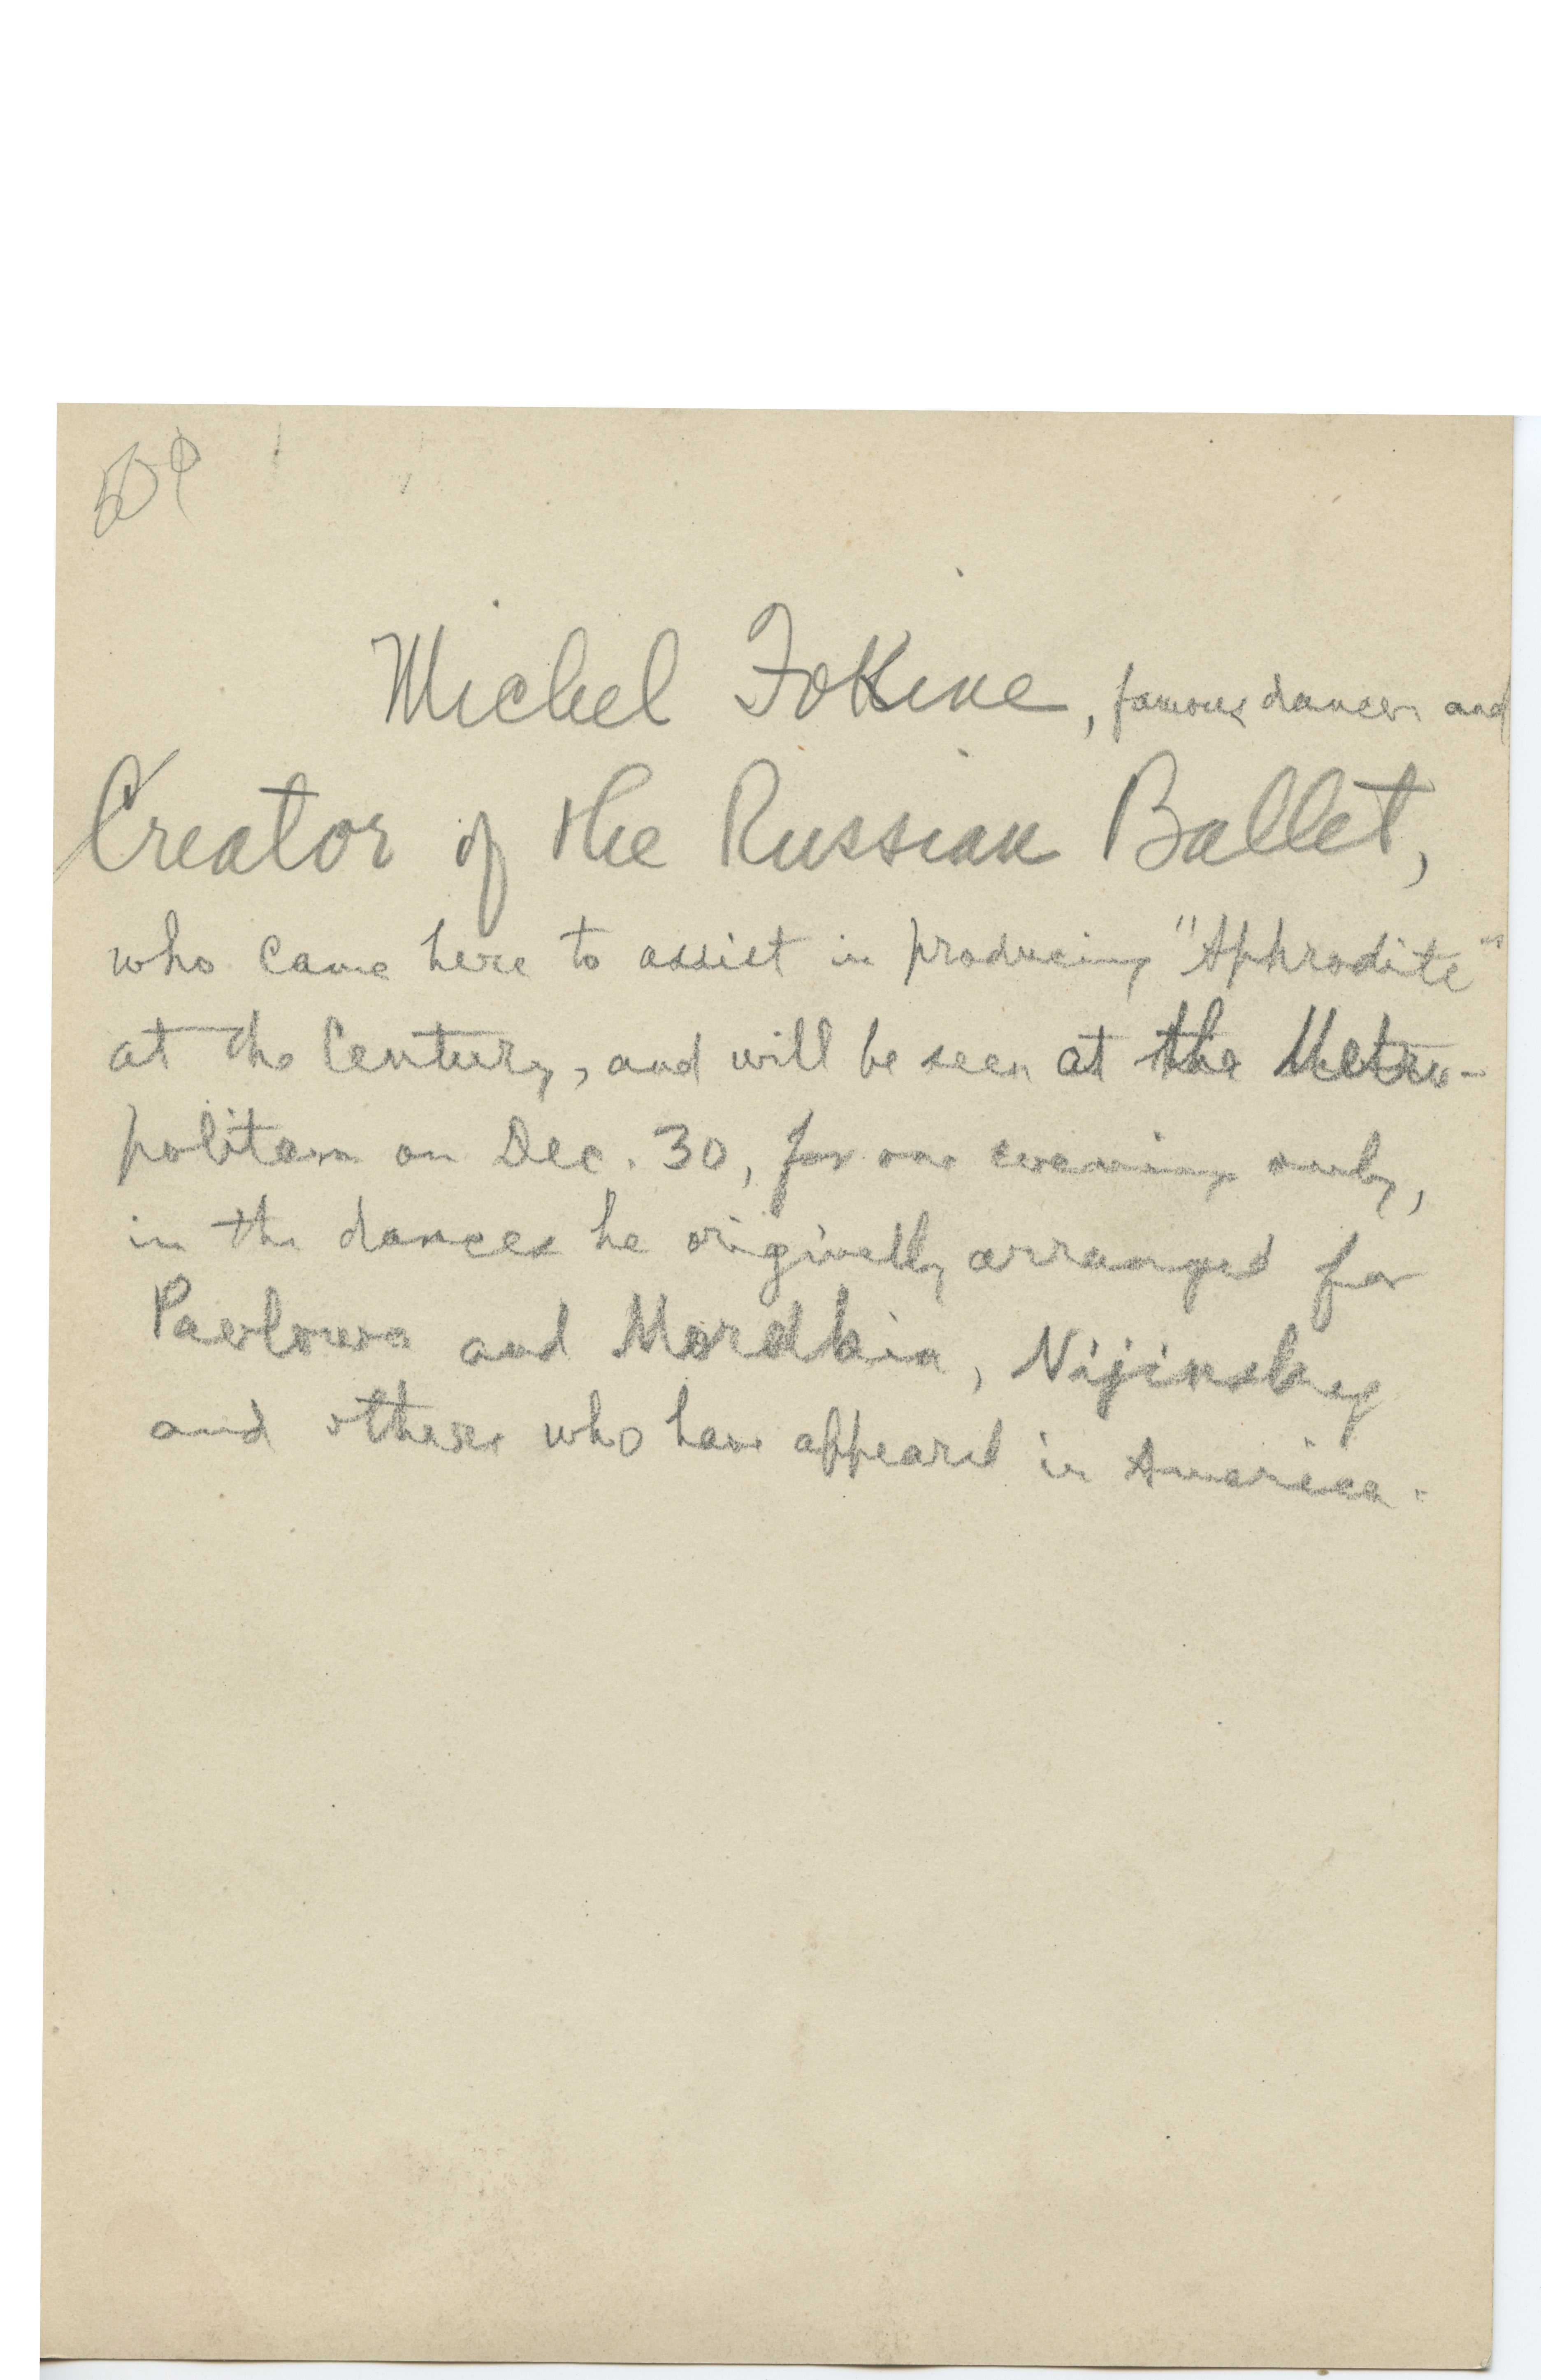 Michel Fokine, famous dancer and
Creator of the Russian Ballet,
who came here to assist in producing "Aphrodite"
at the Century, and will be seen at the Metro-
politan on Dec. 30, for one evening only,
in the dances he originally arranged for
Pavlowa and Mordkin, Nijinsky
and others who have appeared in America.